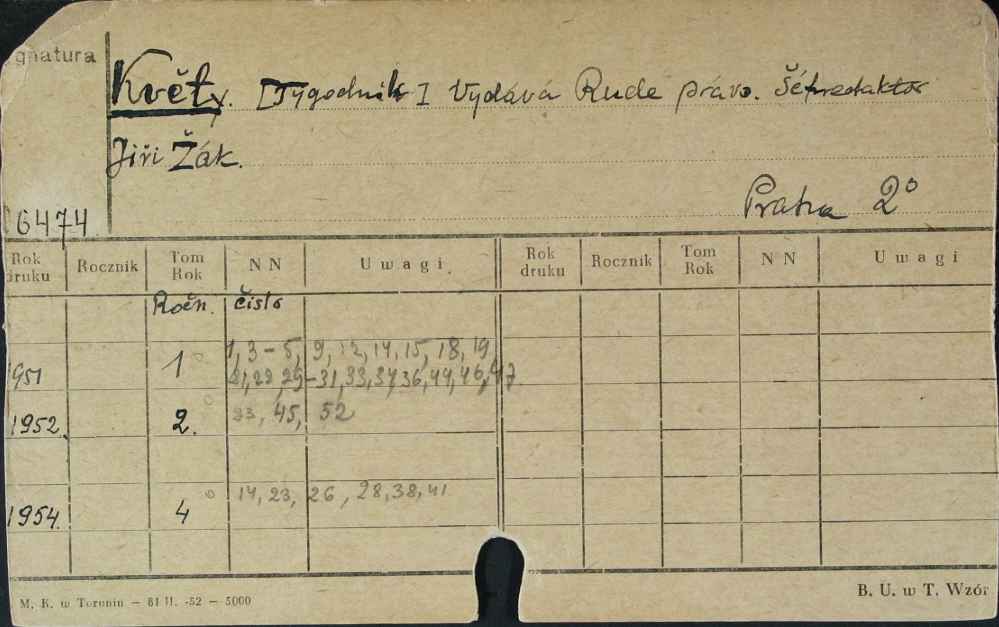 gnatura
Květy. [Tygodnik] Vydává Rudé právo. Šéfredaktor
Jiří Žák.
Praha 2°
6474
Rok druku Rocznik Tom Rok NN Uwagi Rok druku Rocznik Tom Rok NN Uwagi
Ročn. čislo
1951 1 1, 3-5, 9, 12, 14, 15, 18, 19,
21, 22, 25-31, 33, 34, 36, 44, 46, 47.
1952. 2. 23, 45, 52
1954. 4 14, 23, 26, 28, 38, 41
M. K. w Toruniu — 61 II. -52 — 5000
B. U. w T. Wzór